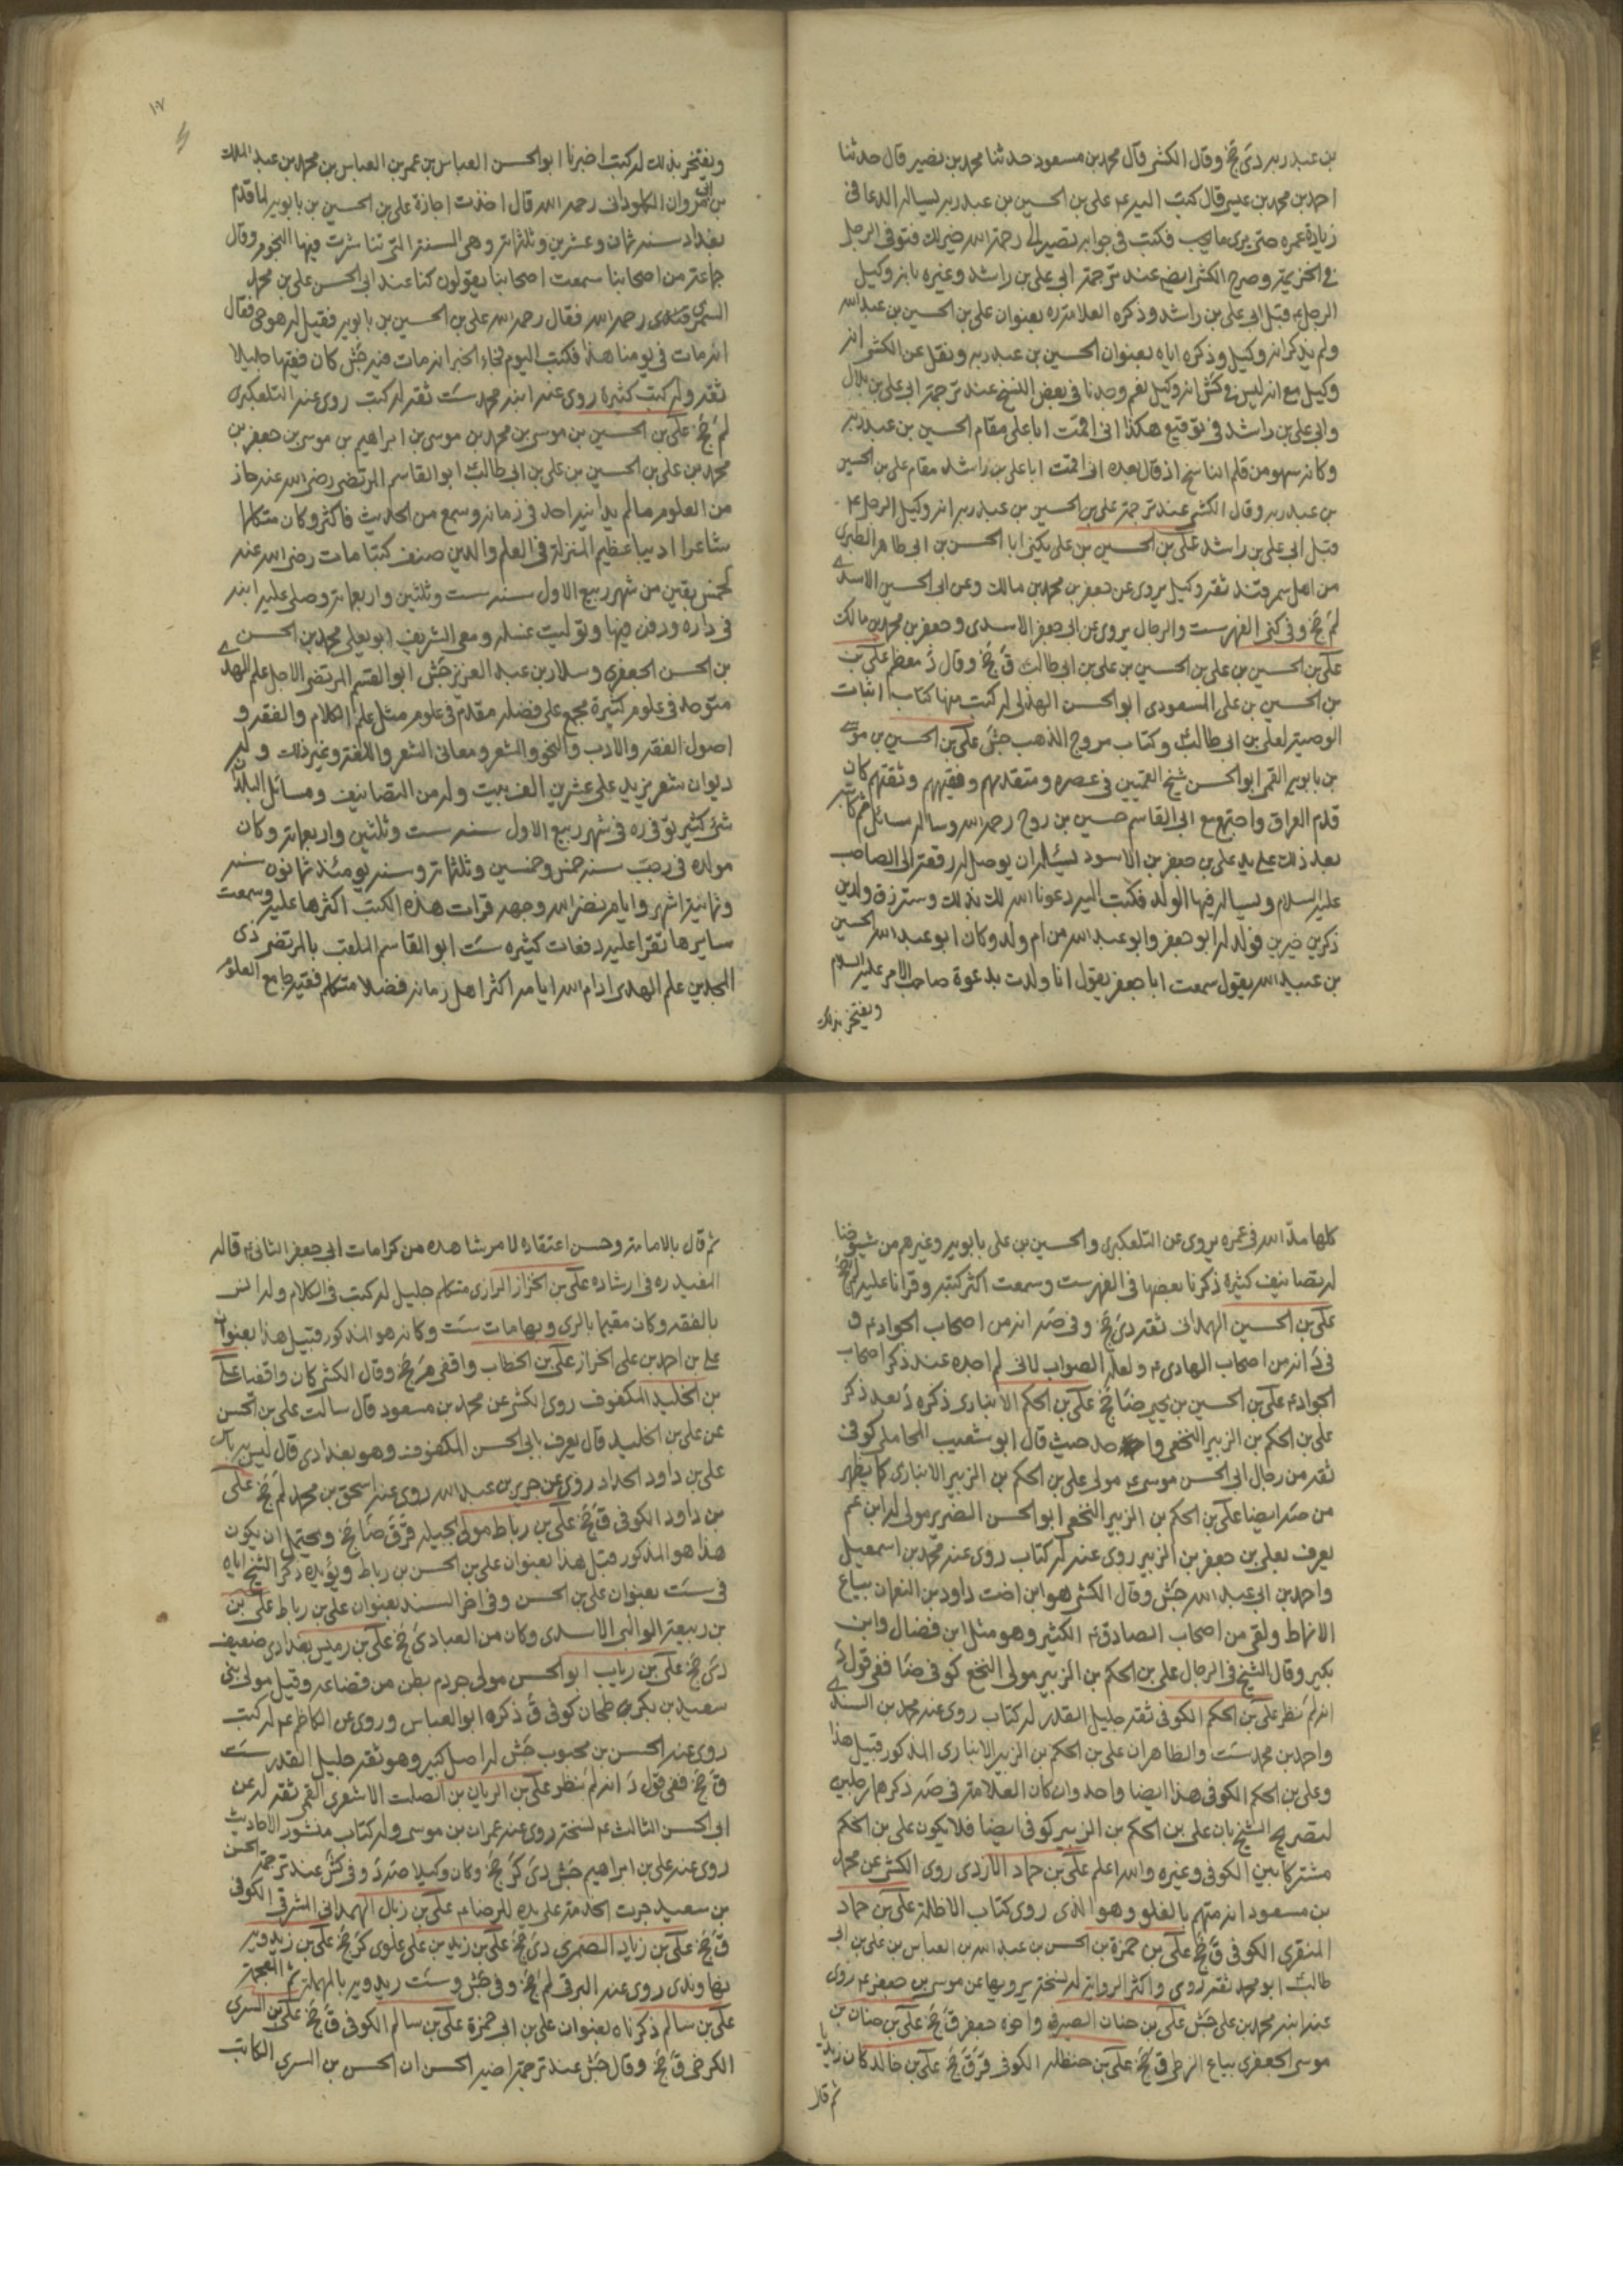 بن عبد ربه دى جخ وقال الكشى قال محمد بن مسعود حدثنا محمد بن نصير قال حدثنا
احمد بن محمد بن عيسى قال كتب اليه ع على بن الحسين بن عبد ربه يساله الدعا فى
زيادة عمره حتى يرى ما يحب فكتب فى جوابه تصير الى رحمة الله خير لك فتوفى الرجل
فى الخزيمة وصرح الكشى ايضا عند ترجمة ابى على بن راشد وغيره بانه وكيل
الرجل ع قبل ابى على بن راشد وذكره العلامة ره بعنوان على بن الحسين بن عبد الله
ولم يذكر انه وكيل وذكره اياه بعنوان الحسين بن عبد ربه ونقل عن الكشى انه
وكيل مع انه ليس فى كش انه وكيل نعم وجدنا فى بعض النسخ عند ترجمة ابى على بن بلال
وابى على بن راشد فى توقيع هكذا انى اقمت ابا على مقام الحسين بن عبد ربه
وكانه سهو من قلم الناسخ اذ قال بعده انى اقمت ابا على بن راشد مقام على بن الحسين
بن عبد ربه وقال الكشى عند ترجمة على بن الحسين بن عبد ربه انه وكيل الرجل ع
قبل ابى على بن راشد على بن الحسين بن على يكنى ابا الحسن بن ابى طاهر الطبرى
من اهل سمرقند ثقة وكيل يروى عن جعفر بن محمد بن مالك وعن ابى الحسين الاسدى
لم جخ وفى كنى الفهرست والرجال يروى عن ابى جعفر الاسدى وجعفر بن محمد بن مالك
على بن الحسين بن على بن الحسين بن على بن ابى طالب ق جخ وقال د معظم على بن
بن الحسين بن على المسعودى ابو الحسن الهذلى له كتب منها كتاب اثبات
الوصية لعلى بن ابى طالب ع وكتاب مروج الذهب جش على بن الحسين بن موسى
بن بابويه القمى ابو الحسن شيخ القميين فى عصره ومتقدمهم وفقيههم وثقتهم كان
قدم العراق واجتمع مع ابى القاسم حسين بن روح رحمه الله وساله مسائل ثم كاتبه
بعد ذلك على يد على بن جعفر بن الاسود يسئله ان يوصل له رقعة الى الصاحب
عليه السلام ويساله فيها الولد فكتب اليه دعونا الله لك بذلك وسترزق ولدين
ذكرين خيرين فولد له ابو جعفر وابو عبد الله من ام ولد وكان ابو عبد الله الحسين
بن عبيد الله يقول سمعت ابا جعفر يقول انا ولدت بدعوة صاحب الامر عليه السلام
ويفتخر بذلك
١٠٧
ويفتخر بذلك له كتب اخبرنا ابو الحسن العباس بن عمر بن العباس بن محمد بن عبد الملك
بن ابى مروان الكلوذانى رحمه الله قال اخذت اجازة على بن الحسين بن بابويه لما قدم
بغداد سنة ثمان وعشرين وثلثمائة وهى السنة التى تناثرت فيها النجوم وقال
جماعة من اصحابنا سمعت اصحابنا يقولون كنا عند ابى الحسن على بن محمد
السمرقندى رحمه الله فقال رحمه الله على بن الحسين بن بابويه فقيل له هو حى فقال
انه مات فى يومنا هذا فكتب اليوم فجاء الخبر انه مات فيه جش كان فقيها جليلا
ثقة وله كتب كثيرة روى عنه ابنه محمد ست ثقة له كتب روى عنه التلعكبرى
لم جخ على بن الحسين بن موسى بن محمد بن موسى بن ابراهيم بن موسى بن جعفر بن
محمد بن على بن الحسين بن على بن ابى طالب ابو القاسم المرتضى رضى الله عنه حاز
من العلوم ما لم يدانيه احد فى زمانه وسمع من الحديث فاكثر وكان متكلما
شاعرا اديبا عظيم المنزلة فى العلم والدين صنف كتبا مات رضى الله عنه
لخمس بقين من شهر ربيع الاول سنة ست وثلثين واربعمائة وصلى عليه ابنه
فى داره ودفن فيها وتوليت غسله ومعى الشريف ابو يعلى محمد بن الحسن
بن الحسن الجعفرى وسلار بن عبد العزيز جش ابو القسم المرتضى الاجل علم الهدى
متوحد فى علوم كثيرة مجمع على فضله مقدم فى علوم مثل علم الكلام والفقه و
اصول الفقه والادب والنحو والشعر ومعانى الشعر واللغة وغير ذلك وله
ديوان شعر يزيد على عشرين الف بيت وله من التصانيف ومسائل البلدان
شئ كثير توفى ره فى شهر ربيع الاول سنة ست وثلثين واربعمائة وكان
مولده فى رجب سنة خمس وخمسين وثلثمائة وسنه يومئذ ثمانون سنة
وثمانية اشهر وايام نضر الله وجهه قرات هذه الكتب اكثرها عليه وسمعت
سايرها تقرا عليه دفعات كثيره ست ابو القاسم الملقب بالمرتضى ذى
المجدين علم الهدى ادام الله ايامه اكثر اهل زمانه فضلا متكلم فقيه جامع العلوم
كلها مد الله فى عمره يروى عن التلعكبرى والحسين بن على بابويه وغيرهم من شيوخنا
له تصانيف كثيرة ذكرنا بعضها فى الفهرست وسمعت اكثر كتبه وقرانا عليه لم جخ
على بن الحسين الهمدانى ثقة دى جخ وفى صه انه من اصحاب الجواد ع و
فى د انه من اصحاب الهادى ع ولعله الصواب لانى لم اجده عند ذكر اصحاب
الجواد ع على بن الحسين بن يحيى ضا جخ على بن الحكم الانبارى ذكره د بعد ذكر
على بن الحكم بن الزبير النخعى واحد حيث قال ابو شعيب المحاملى كوفى
ثقة من رجال ابى الحسن موسى ع مولى على بن الحكم بن الزبير الانبارى كما يظهر
من صه ايضا على بن الحكم بن الزبير النخعى ابو الحسن الضرير مولى له ابن عم
يعرف بعلى بن جعفر بن الزبير روى عنه له كتاب روى عنه محمد بن اسمعيل
واحمد بن ابى عبد الله جش وقال الكشى هو ابن اخت داود بن النعمان بياع
الانماط ولقى من اصحاب الصادق ع الكثير وهو مثل ابن فضال وابن
بكير وقال الشيخ فى الرجال على بن الحكم بن الزبير مولى النخع كوفى ضا ففى قول د
انه لم نظر على بن الحكم الكوفى ثقة جليل القدر له كتاب روى عنه محمد بن السندى
واحمد بن محمد ست والظاهر ان على بن الحكم بن الزبير الانبارى المذكور قبيل هذا
وعلى بن الحكم الكوفى هذا ايضا واحد وان كان العلامة فى صه ذكرهما رجلين
لتصريح الشيخ بان على بن الحكم بن الزبير كوفى ايضا فلا يكون على بن الحكم
مشتركا بين الكوفى وغيره والله اعلم على بن حماد الازدى روى الكشى عن محمد
بن مسعود انه متهم بالغلو وهو الذى روى كتاب الاظلة على بن حماد
المنقرى الكوفى ق جخ على بن حمزة بن الحسن بن عبيد الله بن العباس بن على بن ابى
طالب ابو محمد ثقة روى واكثر الرواية له نسخة يرويها عن موسى بن جعفر ع روى
عنه ابنه محمد بن على جش على بن حنان الصيرفى واخوه جعفر ق جخ على بن حنان بن
موسى الجعفرى بياع الزطى ق جخ على بن حنظلة الكوفى قر ق جخ على بن خالد كان زيديا
ثم قال
ثم قال بالامامة وحسن اعتقاده لامر شاهده من كرامات ابى جعفر الثانى ع قاله
المفيد ره فى ارشاده على بن الخزاز الرازى متكلم جليل له كتب فى الكلام وله انس
بالفقه وكان مقيما بالرى وبها مات ست وكانه هو المذكور قبيل هذا بعنوان
على بن احمد بن على الخزاز على بن الخطاب واقفى م جخ وقال الكشى كان واقفيا على
بن الخليد المكفوف روى الكشى عن محمد بن مسعود قال سالت على بن الحسن
عن على بن الخليد قال يعرف بابى الحسن المكفوف وهو بغدادى قال ليس به باس
على بن داود الحداد روى عن حريز بن عبد الله روى عنه اسحق بن محمد لم جخ على
بن داود الكوفى ق جخ على بن رباط مولى بجيلة قر ق ضا جخ ويحتمل ان يكون
هذا هو المذكور قبل هذا بعنوان على بن الحسن بن رباط ويؤيده ذكر الشيخ اياه
فى ست بعنوان على بن الحسن وفى اخر السند بعنوان على بن رباط على بن
بن ربيعة الوالبى الاسدى وكان من العباد ى جخ على بن رميس بغدادى ضعيف
دى جخ على بن رياب ابو الحسن مولى جرم بطن من قضاعة وقيل مولى بنى
سعيد بن بكر طحان كوفى ق ذكره ابو العباس وروى عن الكاظم ع له كتب
روى عنه الحسن بن محبوب جش له اصل كبير وهو ثقة جليل القدر ست
ق جخ ففى قول د انه لم نظر على بن الريان بن الصلت الاشعرى القمى ثقة له عن
ابى الحسن الثالث ع نسخة روى عنه عمران بن موسى وله كتاب منثور الاحاديث
روى عنه على بن ابراهيم جش دى كر جخ وكان وكيلا صه د وفى كش عند ترجمة الحسن
بن سعيد جرت الخدمة على يده للرضا ع على بن زبال الهمدانى المشرقى الكوفى
ق جخ على بن زياد الصيمرى دى جخ على بن زيد بن على علوى كر جخ على بن زيدويه
نهاوندى روى عنه البرقى لم جخ وفى جش وست ريدويه بالمهملة ثم المعجمة
على بن سالم ذكرناه بعنوان على بن ابى حمزة على بن سالم الكوفى ق جخ على بن السرى
الكرخى ق جخ وقال جش عند ترجمة اخيه الحسن ان الحسن بن السرى الكاتب